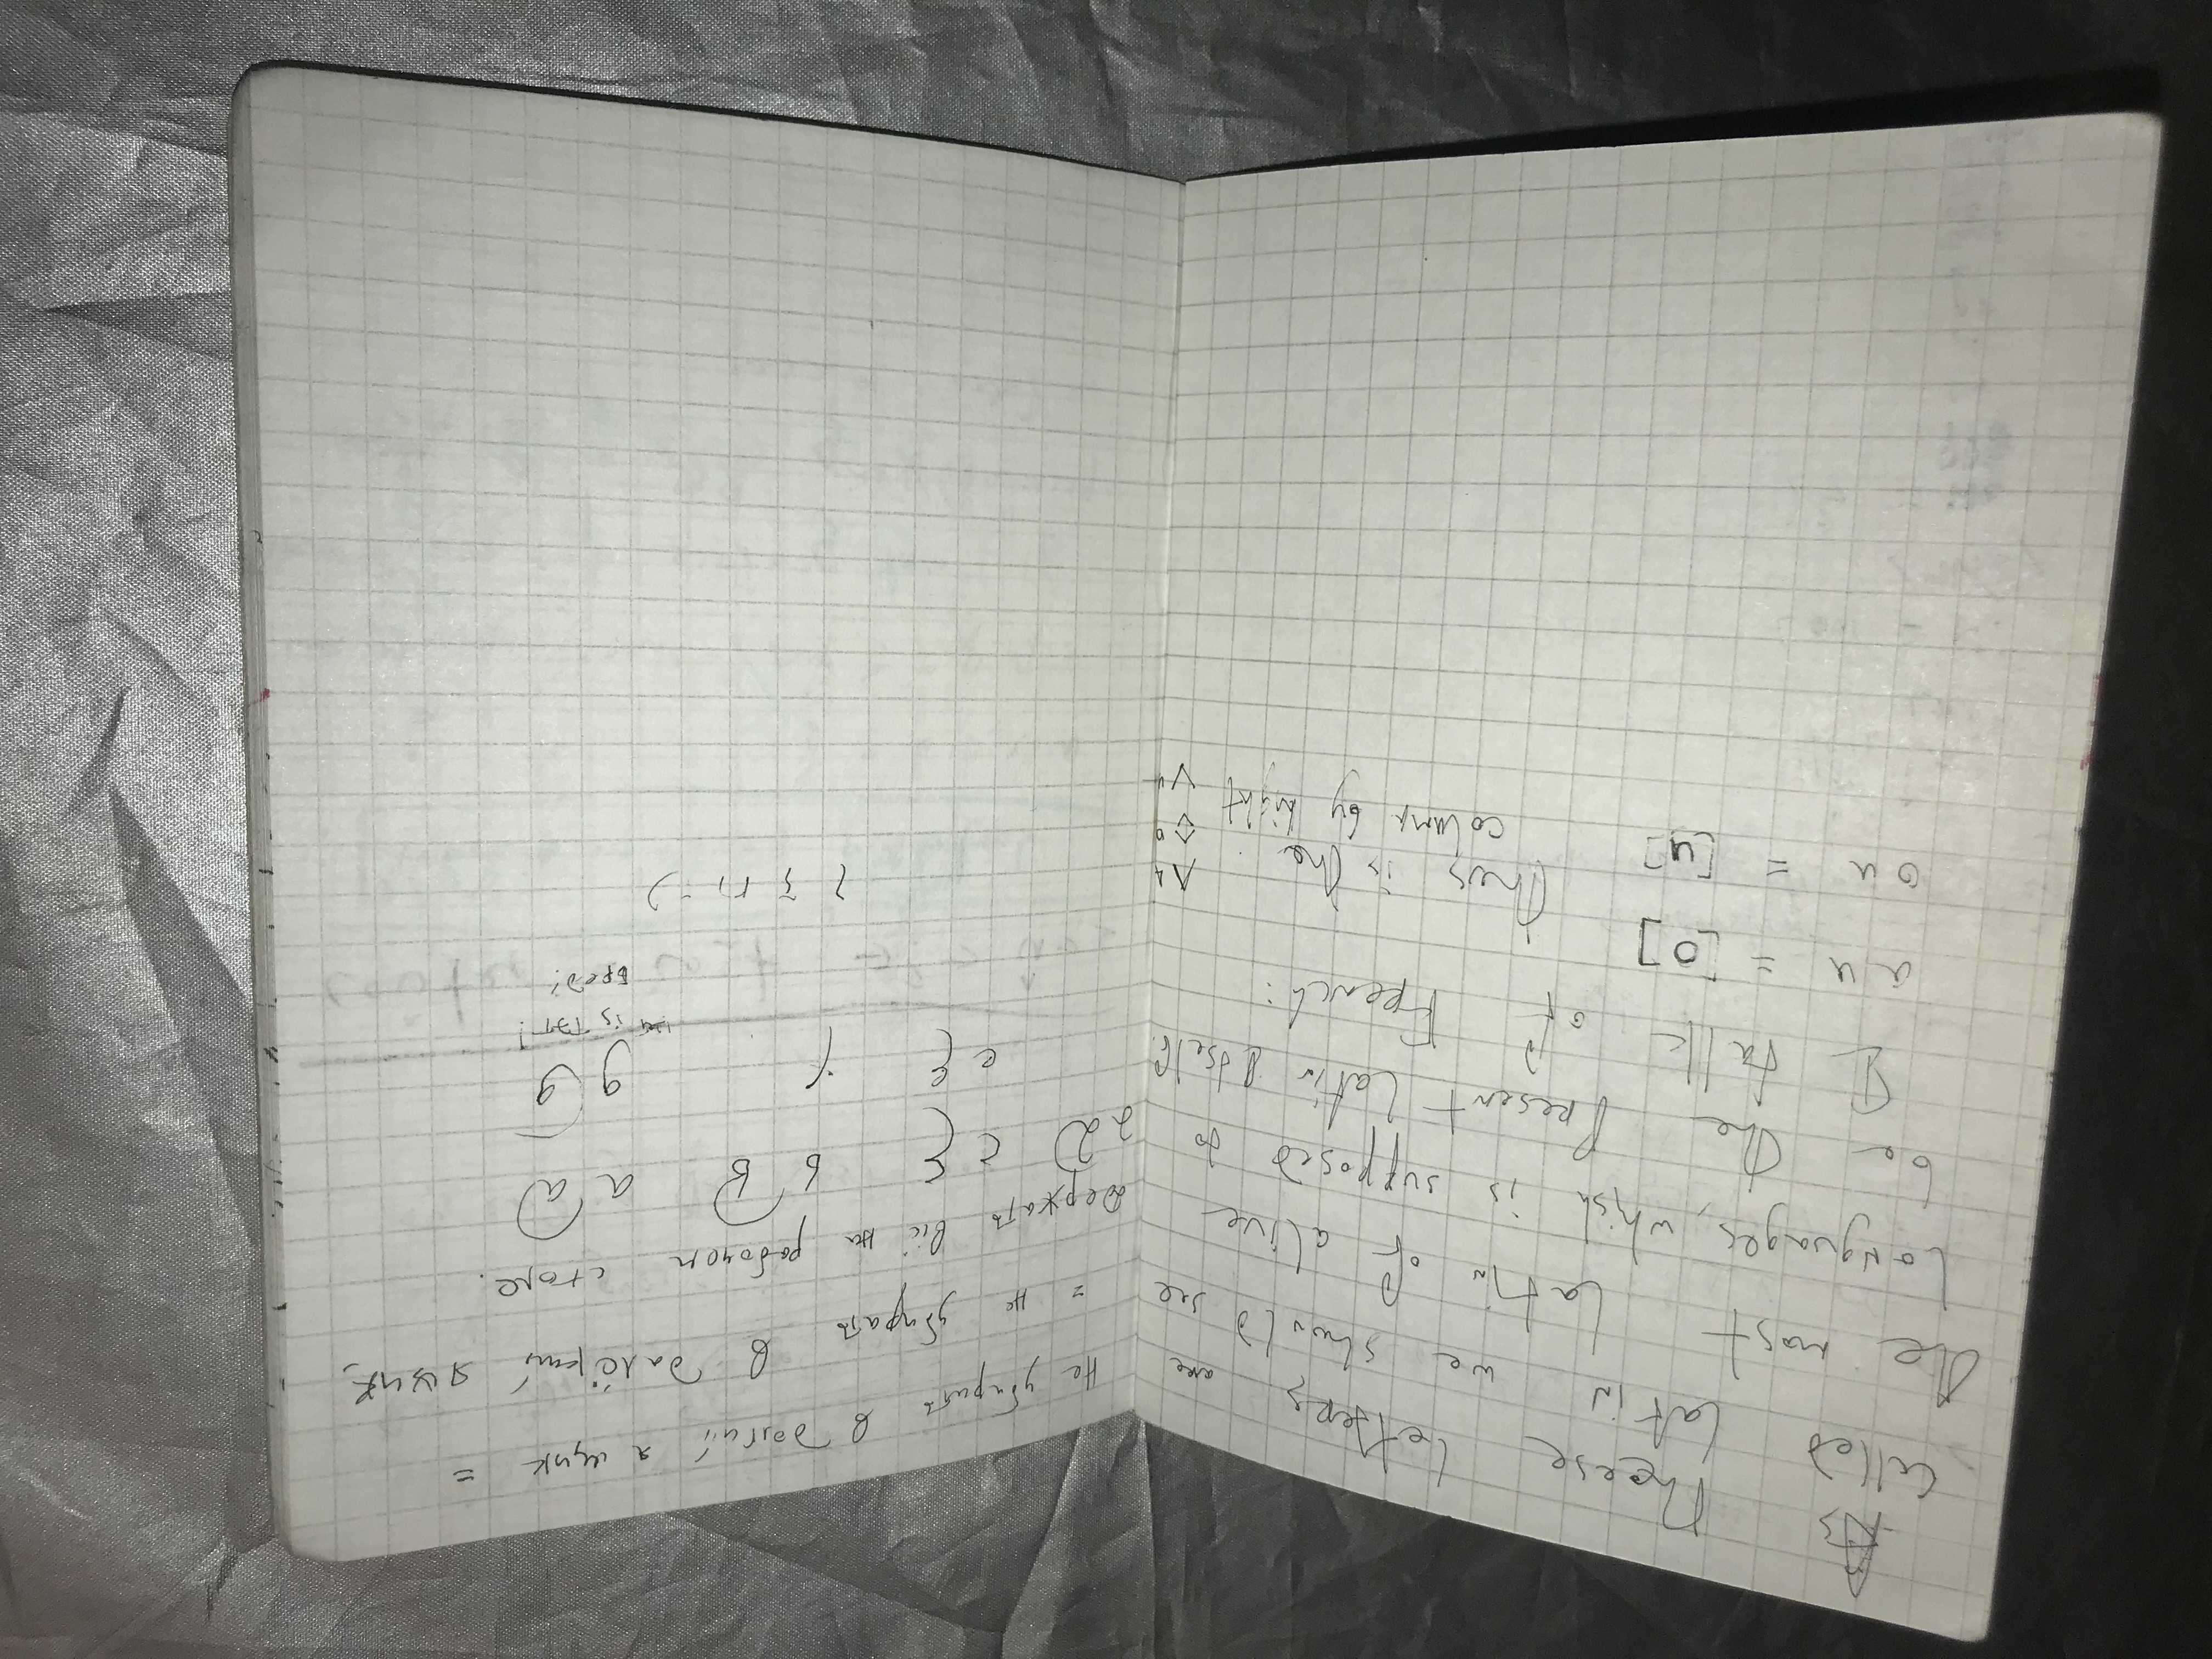 As Theese letters are
called latin we should see
the most latin of alive
languages, whish is supposed to
be the Present latin itself.
I talk of French:
au = [o]
ou = [u]
Thus is the
column by hight
Λ A
◇ o
V u
Не убирать в долгий ящик =
= не убирать в далёкий ящик,
Держать всё на рабочем столе.
б В а а
g g
is тэт!
Бред!